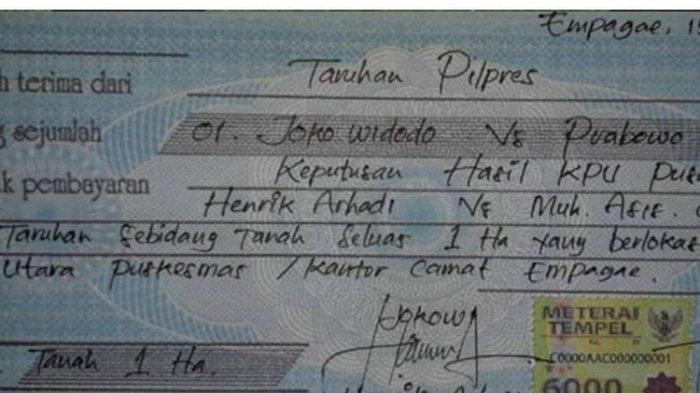 Empagae,
terima dari Taruhan Pilpres
sejumlah 01. Joko Widodo Vs Prabowo
pembayaran Keputusan Hasil KPU Pus
Henrik Arhadi Vs Muh. Asis.
Taruhan Sebidang Tanah Seluas 1 Ha yang berlokas
Utara Puskesmas / Kantor Camat Empagae.
Jokowi
METERAI
TEMPEL
C0000AAC000000001
Tanah 1 Ha.
6000